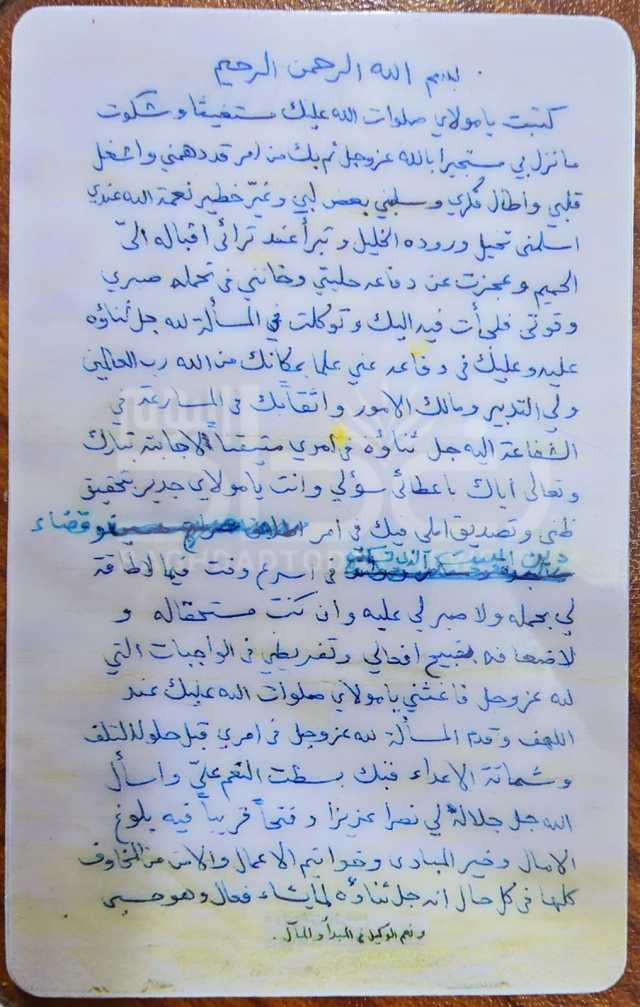 بسم الله الرحمن الرحيم
كتبت يا مولاي صلوات الله عليك مستغيثا وشكوت
ما نزل بي مستجيرا بالله عز وجل ثم بك من امر قد دهمني واشغل
قلبي واطال فكري وسلبني بعض لبي وغيّر خطير نعمة الله عندي
اسلمني تخيل وروده الخليل وتبرأ عند ترائ اقباله اليّ
الحميم وعجزت عن دفاعه حيلتي وخانني في تحمله صبري
وقوتي فلجأت فيه اليك وتوكلت في المسألة لله جل ثناؤه
عليه وعليك في دفاعه عني علما بمكانك من الله رب العالمين
ولي التدبير ومالك الامور واثقا بك في المسارعة في
الشفاعة اليه جل ثناؤه في امري متيقنا لاجابته تبارك
وتعالى اياك باعطائي سؤلي وانت يا مولاي جدير بتحقيق
ظني وتصديق املي فيك في امر وقضاء
في اسرع وقت فيما لا طاقة
لي بحمله ولا صبر لي عليه وان كنت مستحقا له و
لاضعافه بقبيح افعالي وتفريطي في الواجبات التي
لله عز وجل فاغثني يا مولاي صلوات الله عليك عند
اللهف وقدم المسألة لله عز وجل في امري قبل حلول التلف
وشماتة الاعداء فبك بسطت النعم عليّ واسأل
الله جل جلاله لي نصرا عزيزا وفتحا قريبا فيه بلوغ
الامال وخير المبادى وخواتيم الاعمال والامن من المخاوف
كلها في كل حال انه جل ثناؤه لما يشاء فعال وهو حسبي
ونعم الوكيل في المبدأ والمآل.